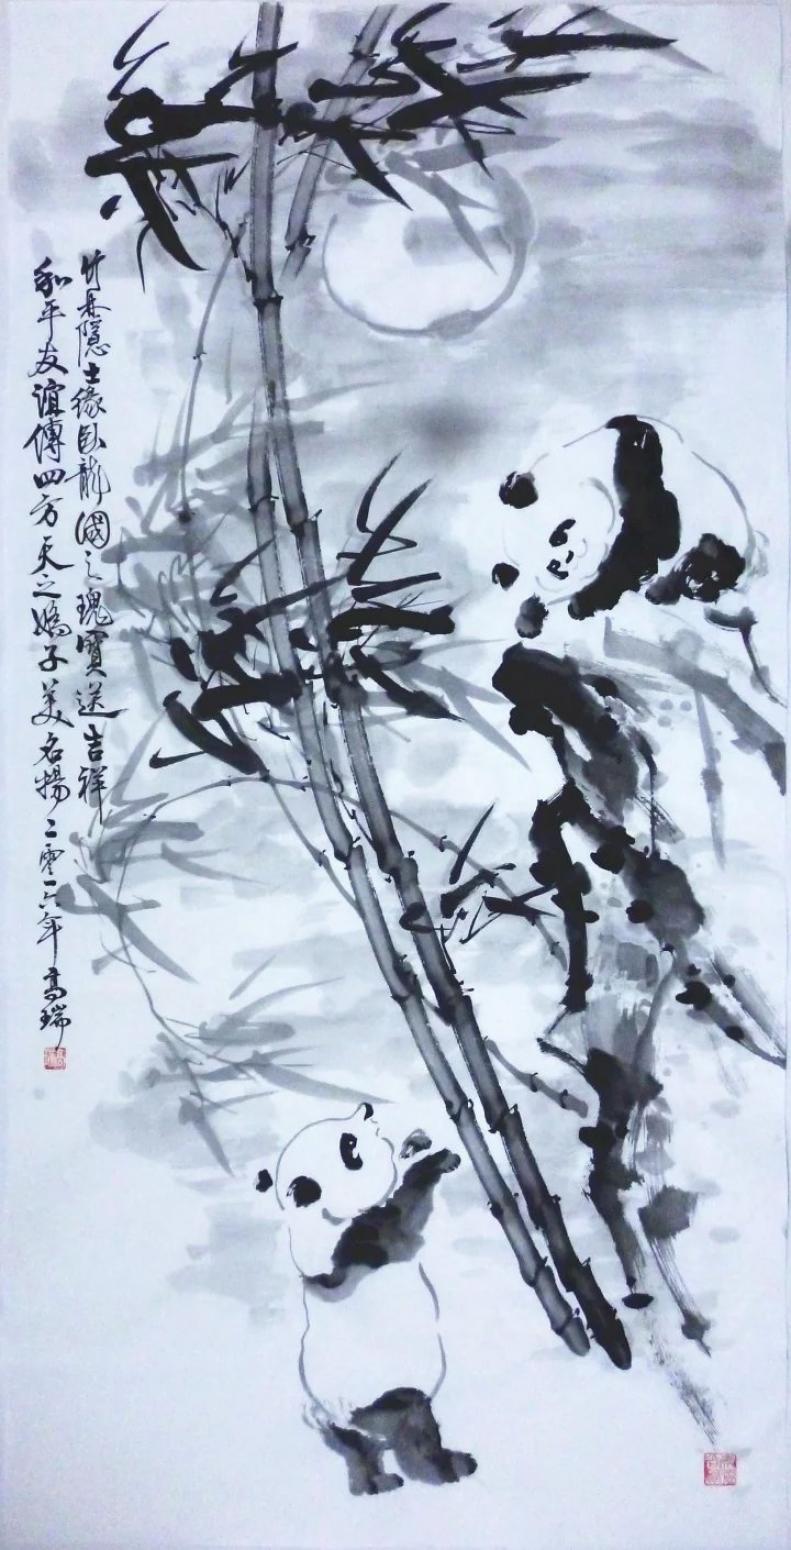 竹林隱士緣臥龍國之瑰寶送吉祥
和平友誼傳四方天之嬌子美名揚二零一六年高瑞